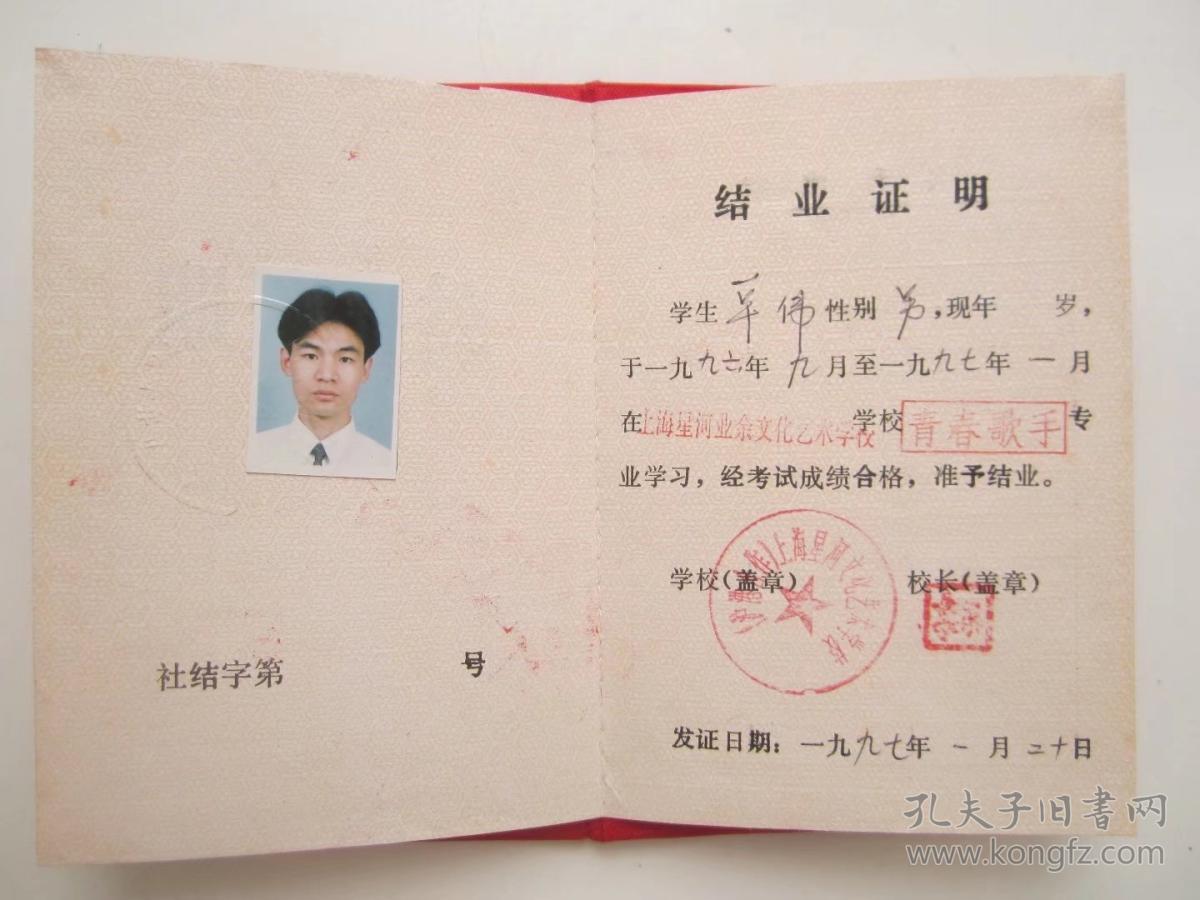 社结字第 号
结业证明
学生 伟 性别 男，现年 岁，
于一九九六年 九月至一九九七年 一月
在上海星河业余文化艺术学校 学校 青春歌手 专
业学习，经考试成绩合格，准予结业。
学校（盖章） 校长（盖章）
上海星河文化艺术学校
发证日期：一九九七年 一月二十日
孔夫子旧書网
www.kongfz.com